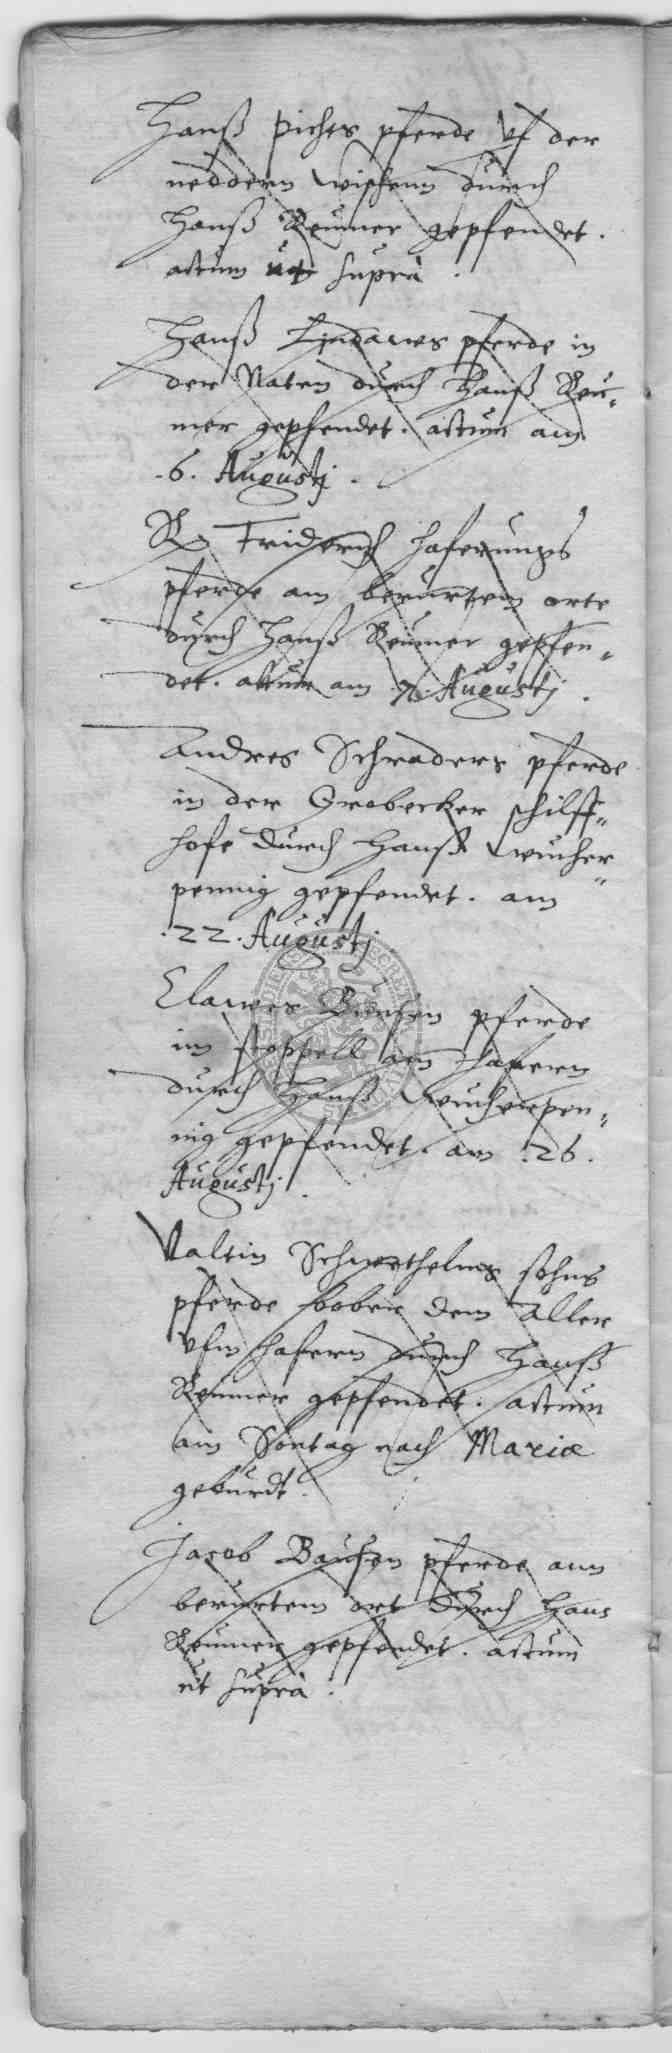 Hanß Piches pferde vf der
neddern wischenn durch
Hanß Reumer gepfendet.
actum ut supra.
Hanß Lindawes pferde in
der Naten durch Hanß Reu-
mer gepfendet. actum am
.6. Augustj.
Friderich Haferungs
pferde am berurtem orte
durch Hanß Reumer gepfen-
det. actum am .7. Augustj.
Andres Schraders pferde
in der Grobecker schilff-
hofe durch Hanß Wucher-
pennig gepfendet. am
.22. Augustj
Clawes Bausen pferde
im stoppell am hafern
durch Hanß Wucherpen-
nig gepfendet. am .26.
Augustj.
Valtin Schwethelms sohns
pferde boben dem Aller
vfm hafern durch Hanß
Reumer gepfendet. actum
am Sontag nach Mariæ
geburdt.
Jacob Bausen pferde am
berurtem ort durch Hans
Reumer gepfendet. actum
ut supra.